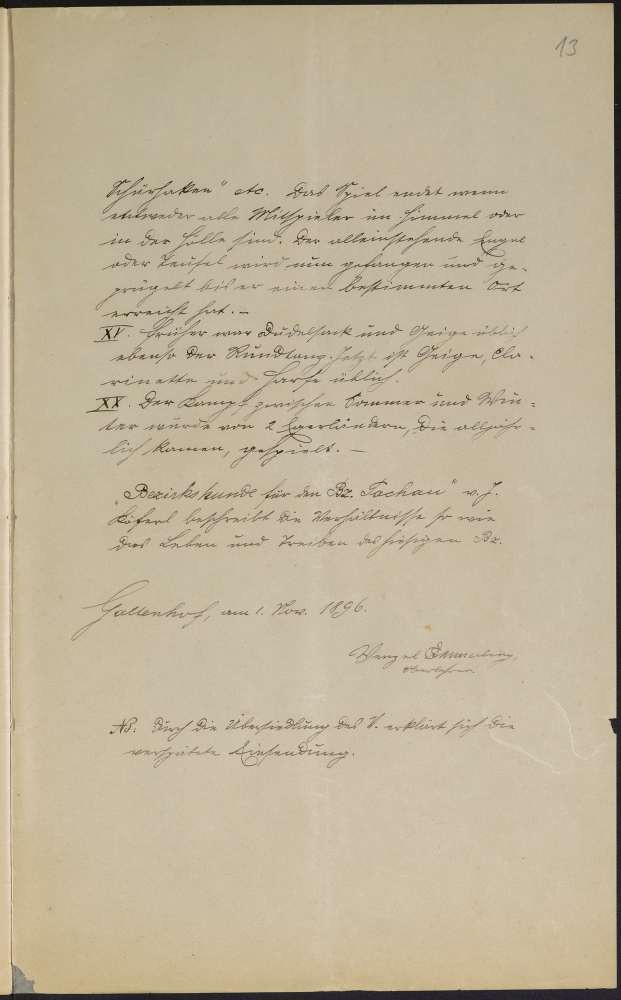 13
Schürhaken" etc. Das Spiel endet wenn
entweder alle Mitspieler im Himmel oder
in der Hölle sind. Der alleinstehende Engel
oder Teufel wird nun gefangen und ge-
prügelt bis er einen bestimmten Ort
erreicht hat. –
XV. Früher war Dudelsack und Geige üblich
ebenso der Rundtanz. Jetzt ist Geige, Cla-
rinette und Harfe üblich.
XX. Der Kampf zwischen Sommer und Win-
ter wurde von 2 Egerländern, die alljähr-
lich kamen, gespielt. –
"Bezirkskunde für den Bz. Tachau" v. J.
Köferl beschreibt die Verhältnisse so wie
das Leben und Treiben des hiesigen Bz.
Galtenhof, am 1. Nov. 1896.
Wenzel
Oberlehrer
NB. Durch die Übersiedlung des V. erklärt sich die
verspätete Einsendung.